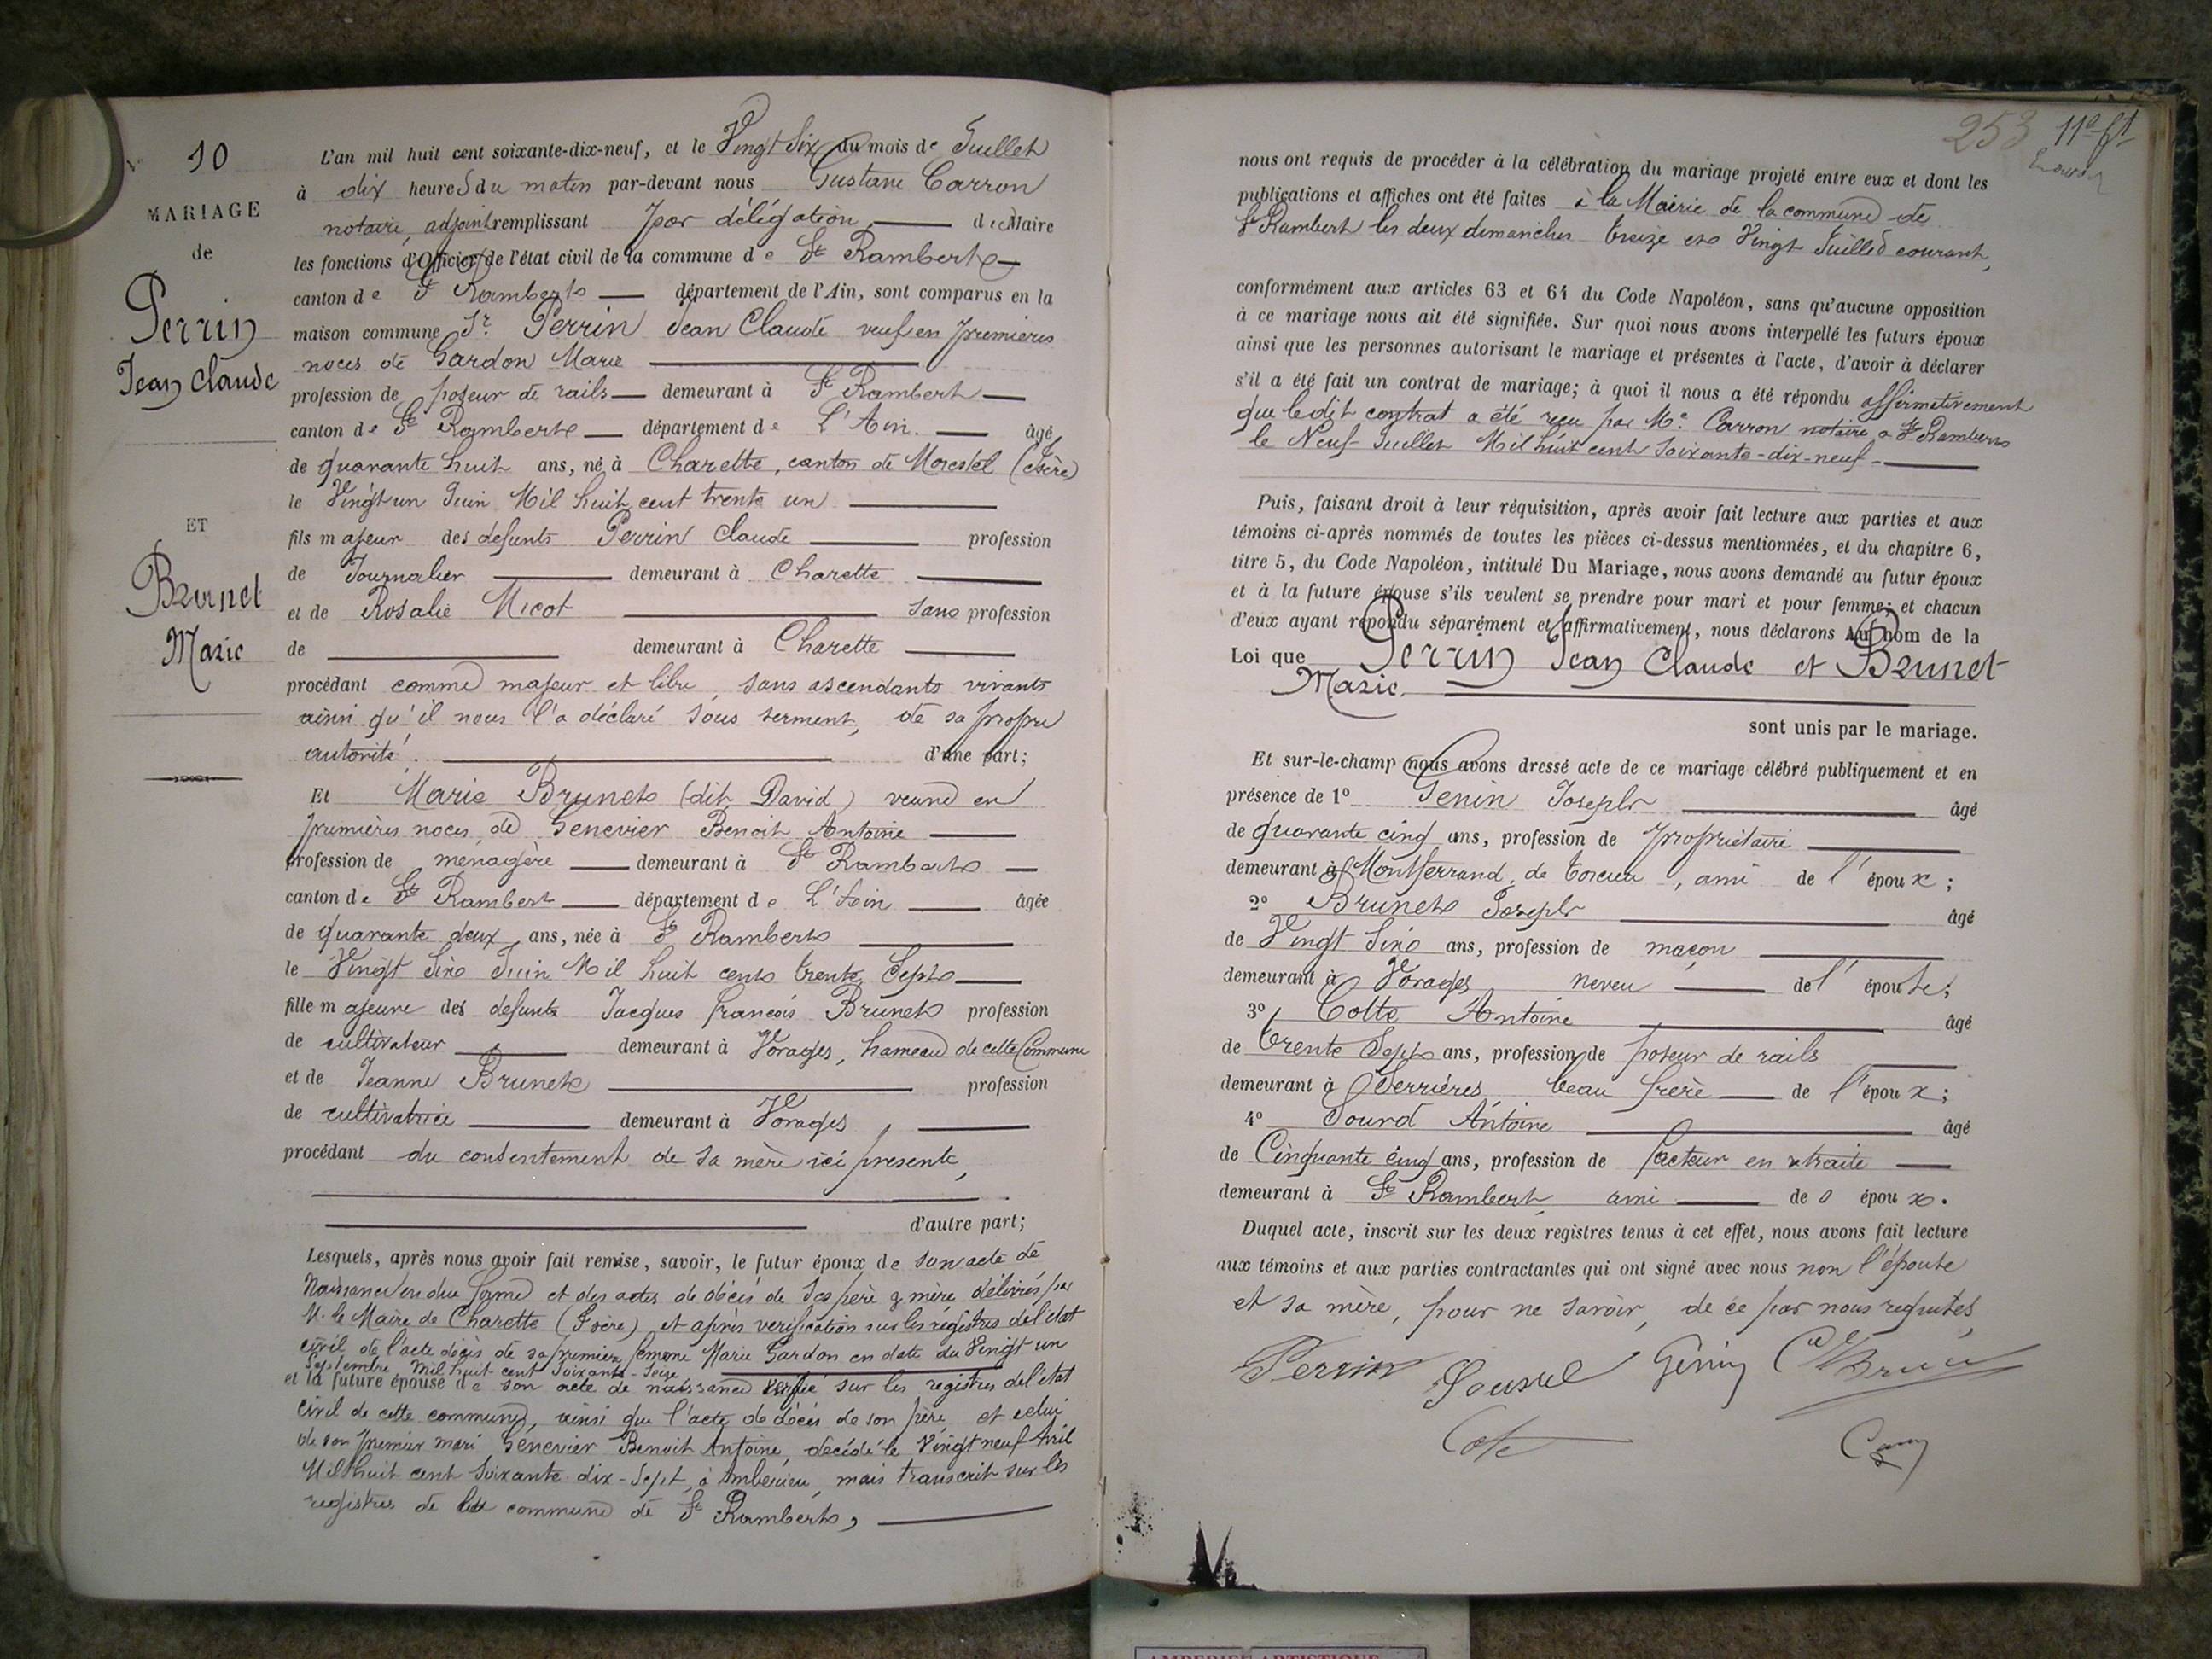 N° 10
MARIAGE
de
Perrin
Jean Claude
ET
Brunet
Marie
L'an mil huit cent soixante-dix-neuf, et le Vingt Six du mois de Juillet
à dix heures du matin par-devant nous Gustave Carron
notaire, adjoint remplissant par délégation du Maire
les fonctions d'Officier de l'état civil de la commune de St Rambert
canton de St Rambert département de l'Ain, sont comparus en la
maison commune Sr. Perrin Jean Claude veuf en premières
noces de Gardon Marie
profession de poseur de rails demeurant à St Rambert
canton de St Rambert département de L'Ain. âgé
de quarante huit ans, né à Charette, canton de Morestel (Isère)
le Vingt un Juin Mil huit cent trente un
fils majeur des defunts Perrin Claude profession
de Journalier demeurant à Charette
et de Rosalie Micot sans profession
de demeurant à Charette
procédant comme majeur et libre, sans ascendants vivants
ainsi qu'il nous l'a déclaré sous serment, de sa propre
autorité. d'une part;
Et Marie Brunet (dit David) veuve en
premières noces de Genevier Benoit Antoine
profession de ménagère demeurant à St Rambert
canton de St Rambert département de L'Ain âgée
de quarante deux ans, née à St Rambert
le Vingt Six Juin Mil huit cent trente Sept
fille majeure des defunts Jacques françois Brunet profession
de cultivateur demeurant à Vorages, hameau de cette Commune
et de Jeanne Brunet profession
de cultivatrice demeurant à Vorages,
procédant du consentement de sa mère ici presente,
d'autre part;
Lesquels, après nous avoir fait remise, savoir, le futur époux de son acte de
Naissance en due forme et des actes de décès de ses père & mère, délivrés par
M. le Maire de Charette (Isère) et après verification sur les registres de l'etat
civil de l'acte décès de sa première femme Marie Gardon en date du Vingt un
Septembre Mil huit-cent Soixante-Seize
et la future épouse de son acte de naissance verifié sur les registres de l'etat
civil de cette commune, ainsi que l'acte de décès de son père et celui
de son premier mari Genevier Benoit Antoine, décédé le Vingt neuf Avril
Mil huit cent Soixante dix-Sept, à Amberieu, mais transcrit sur les
registres de la commune de St Rambert,
253 11e ft
nous ont requis de procéder à la célébration du mariage projeté entre eux et dont les
publications et affiches ont été faites à la Mairie de la commune de
St Rambert les deux dimanches treize et Vingt Juillet courant,
conformément aux articles 63 et 64 du Code Napoléon, sans qu'aucune opposition
à ce mariage nous ait été signifiée. Sur quoi nous avons interpellé les futurs époux
ainsi que les personnes autorisant le mariage et présentes à l'acte, d'avoir à déclarer
s'il a été fait un contrat de mariage; à quoi il nous a été répondu affirmativement
que le dit contrat a été reçu par Me. Carron notaire a St Rambert
le Neuf Juillet Mil huit cent Soixante-dix-neuf-
Puis, faisant droit à leur réquisition, après avoir fait lecture aux parties et aux
témoins ci-après nommés de toutes les pièces ci-dessus mentionnées, et du chapitre 6,
titre 5, du Code Napoléon, intitulé Du Mariage, nous avons demandé au futur époux
et à la future épouse s'ils veulent se prendre pour mari et pour femme; et chacun
d'eux ayant répondu séparément et affirmativement, nous déclarons Au nom de la
Loi que Perrin Jean Claude et Brunet
Marie.
sont unis par le mariage.
Et sur-le-champ nous avons dressé acte de ce mariage célébré publiquement et en
présence de 1° Genin Joseph âgé
de quarante cinq ans, profession de propriétaire
demeurant à Montferrand, de torcieu, ami de l'époux;
2° Brunet Joseph âgé
de Vingt Six ans, profession de maçon
demeurant à Vorages neveu de l'épouse;
3° Cotte Antoine âgé
de trente Sept ans, profession de poseur de rails
demeurant à Serrières beau frère de l'époux;
4° Sourd Antoine âgé
de Cinquante cinq ans, profession de facteur en retraite
demeurant à St Rambert, ami de l'époux.
Duquel acte, inscrit sur les deux registres tenus à cet effet, nous avons fait lecture
aux témoins et aux parties contractantes qui ont signé avec nous non l'épouse
et sa mère, pour ne savoir, de ce par nous requises,
Perrin Génin
Cote
AMBERIEU ARTISTIQUE